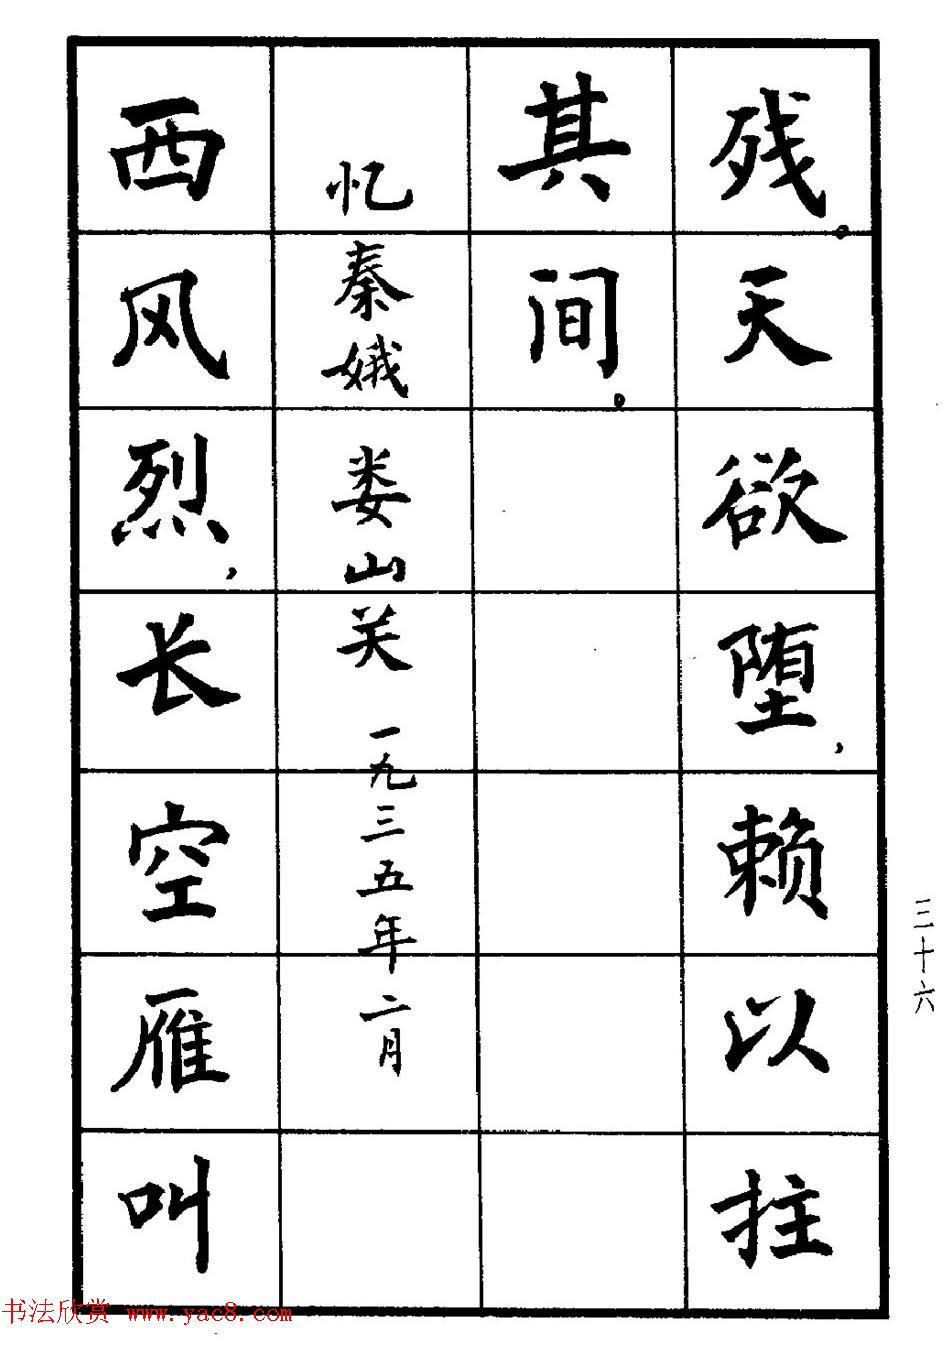 残。天欲堕，赖以拄
其间。
忆秦娥 娄山关 一九三五年二月
西风烈，长空雁叫
三十六
书法欣赏 www.yac8.com